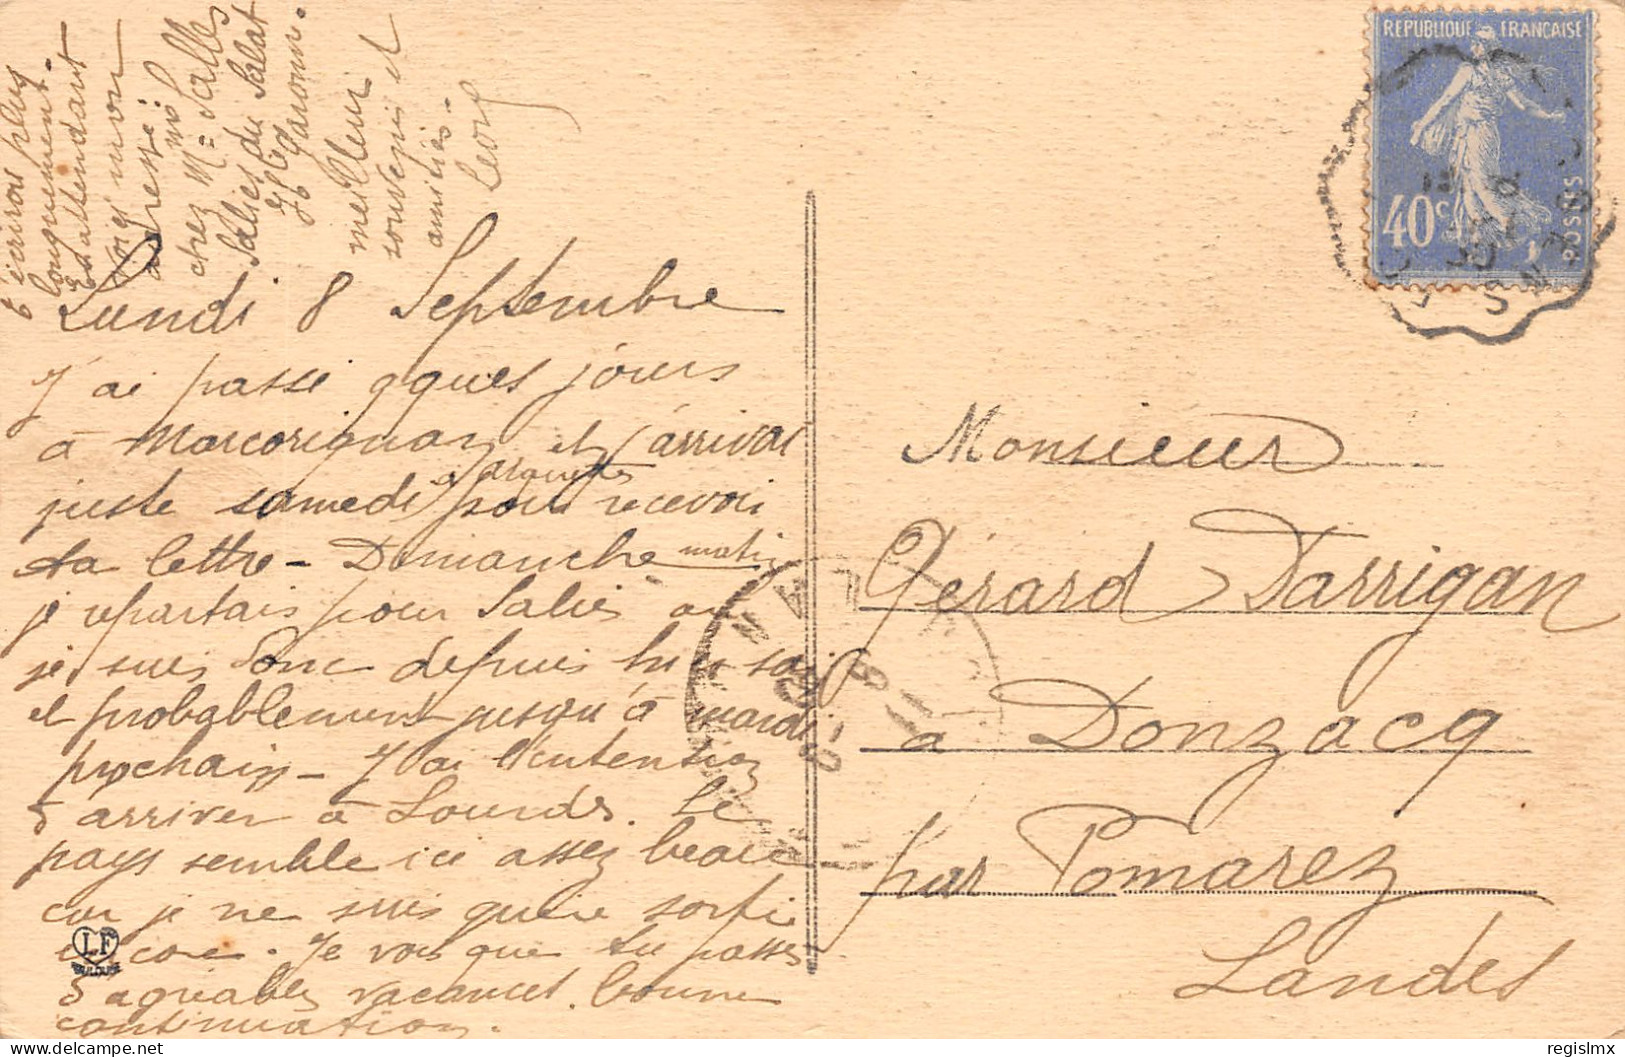 Lundi 8 Septembre
J'ai passé qques jours
à Marcorignan et j'arrivai
juste samedi pour recevoir
ta lettre - Dimanche matin
je repartais pour Salies où
je suis donc depuis hier soir
et probablement jusqu'à mardi
prochain - J'ai l'intention
d'arriver à Lourdes. Le
pays semble ici assez beau
car je ne suis guère sortie
encore. Je vois que tu passes
d'agréables vacances. bonne
continuation.
t'écrirai plus
longuement.
En attendant
voici mon
adresse:
chez Mme Salles
Salies du Salat
Hte Garonne.
meilleur
souvenir et
amitiés -
REPUBLIQUE FRANÇAISE
40c
POSTES
Monsieur
Gérard Darrigan
à Donzacq
par Pomarez
Landes
LF
TOULOUSE
© regislmx